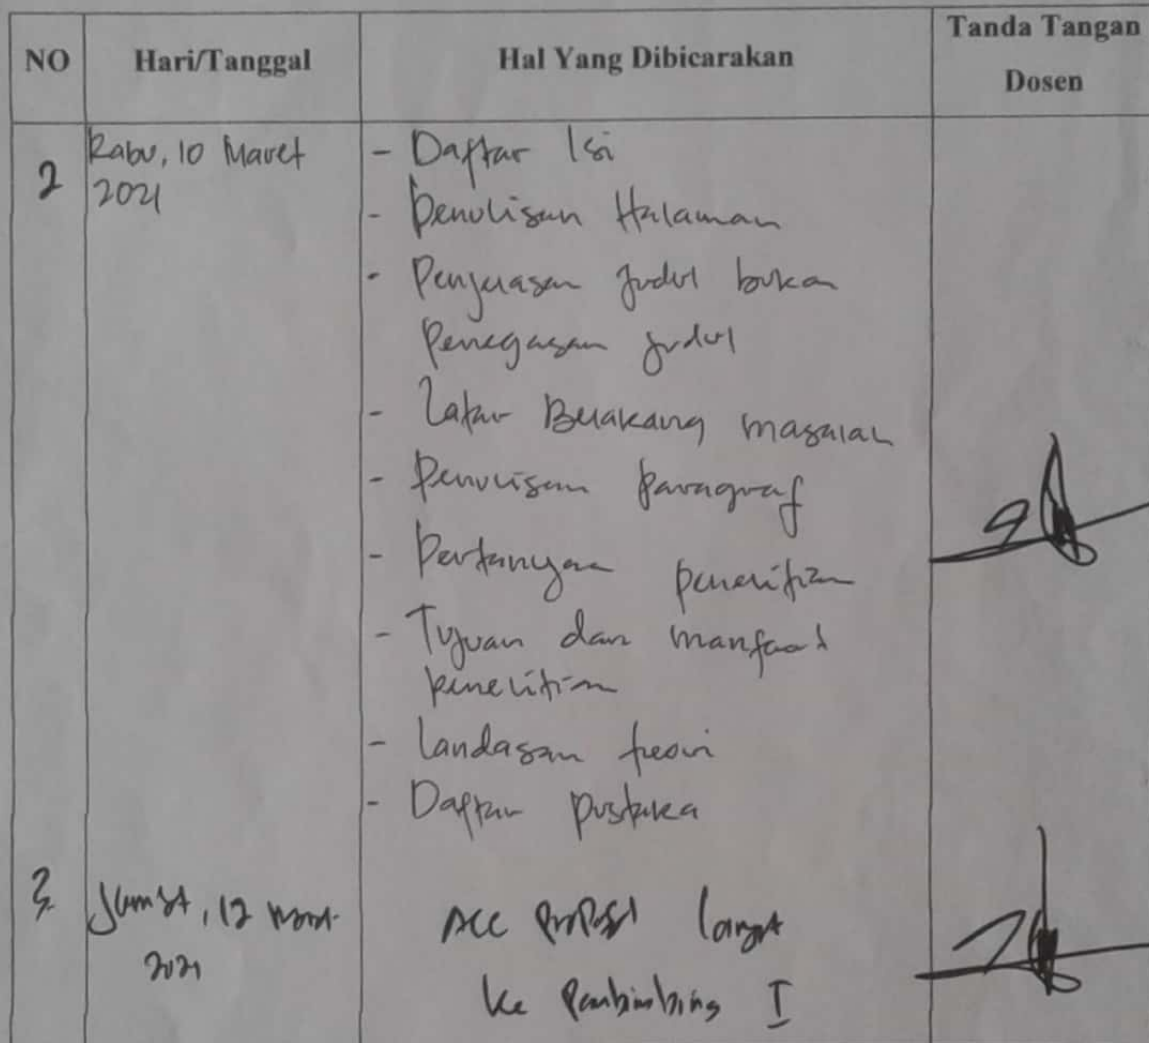 NO Hari/Tanggal Hal Yang Dibicarakan Tanda Tangan Dosen
2 Rabu, 10 Maret 2021
- Daftar Isi
- Penulisan Halaman
- Penjelasan judul bukan
Penegasan judul
- Latar Belakang masalah
- Penulisan paragraf
- Pertanyaan penelitian
- Tujuan dan manfaat
penelitian
- Landasan teori
- Daftar pustaka
3 Jum'at, 12 Maret
2021
ACC Proposal lanjut
ke Pembimbing I